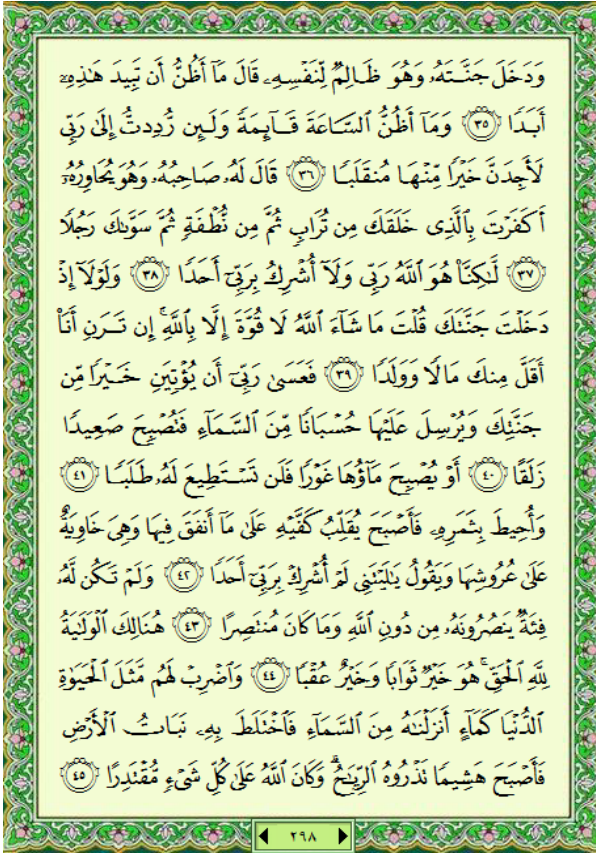 وَدَخَلَ جَنَّتَهُۥ وَهُوَ ظَالِمٌ لِّنَفْسِهِۦ قَالَ مَآ أَظُنُّ أَن تَبِيدَ هَٰذِهِۦٓ
أَبَدًا ﴿٣٥﴾ وَمَآ أَظُنُّ ٱلسَّاعَةَ قَآئِمَةً وَلَئِن رُّدِدتُّ إِلَىٰ رَبِّى
لَأَجِدَنَّ خَيْرًا مِّنْهَا مُنقَلَبًا ﴿٣٦﴾ قَالَ لَهُۥ صَاحِبُهُۥ وَهُوَ يُحَاوِرُهُۥٓ
أَكَفَرْتَ بِٱلَّذِى خَلَقَكَ مِن تُرَابٍ ثُمَّ مِن نُّطْفَةٍ ثُمَّ سَوَّىٰكَ رَجُلًا
﴿٣٧﴾ لَّٰكِنَّا۠ هُوَ ٱللَّهُ رَبِّى وَلَآ أُشْرِكُ بِرَبِّىٓ أَحَدًا ﴿٣٨﴾ وَلَوْلَآ إِذْ
دَخَلْتَ جَنَّتَكَ قُلْتَ مَا شَآءَ ٱللَّهُ لَا قُوَّةَ إِلَّا بِٱللَّهِ ۚ إِن تَرَنِ أَنَا۠
أَقَلَّ مِنكَ مَالًا وَوَلَدًا ﴿٣٩﴾ فَعَسَىٰ رَبِّىٓ أَن يُؤْتِيَنِ خَيْرًا مِّن
جَنَّتِكَ وَيُرْسِلَ عَلَيْهَا حُسْبَانًا مِّنَ ٱلسَّمَآءِ فَتُصْبِحَ صَعِيدًا
زَلَقًا ﴿٤٠﴾ أَوْ يُصْبِحَ مَآؤُهَا غَوْرًا فَلَن تَسْتَطِيعَ لَهُۥ طَلَبًا ﴿٤١﴾
وَأُحِيطَ بِثَمَرِهِۦ فَأَصْبَحَ يُقَلِّبُ كَفَّيْهِ عَلَىٰ مَآ أَنفَقَ فِيهَا وَهِىَ خَاوِيَةٌ
عَلَىٰ عُرُوشِهَا وَيَقُولُ يَٰلَيْتَنِى لَمْ أُشْرِكْ بِرَبِّىٓ أَحَدًا ﴿٤٢﴾ وَلَمْ تَكُن لَّهُۥ
فِئَةٌ يَنصُرُونَهُۥ مِن دُونِ ٱللَّهِ وَمَا كَانَ مُنتَصِرًا ﴿٤٣﴾ هُنَالِكَ ٱلْوَلَٰيَةُ
لِلَّهِ ٱلْحَقِّ ۚ هُوَ خَيْرٌ ثَوَابًا وَخَيْرٌ عُقْبًا ﴿٤٤﴾ وَٱضْرِبْ لَهُم مَّثَلَ ٱلْحَيَوٰةِ
ٱلدُّنْيَا كَمَآءٍ أَنزَلْنَٰهُ مِنَ ٱلسَّمَآءِ فَٱخْتَلَطَ بِهِۦ نَبَاتُ ٱلْأَرْضِ
فَأَصْبَحَ هَشِيمًا تَذْرُوهُ ٱلرِّيَٰحُ ۗ وَكَانَ ٱللَّهُ عَلَىٰ كُلِّ شَىْءٍ مُّقْتَدِرًا ﴿٤٥﴾
٢٩٨